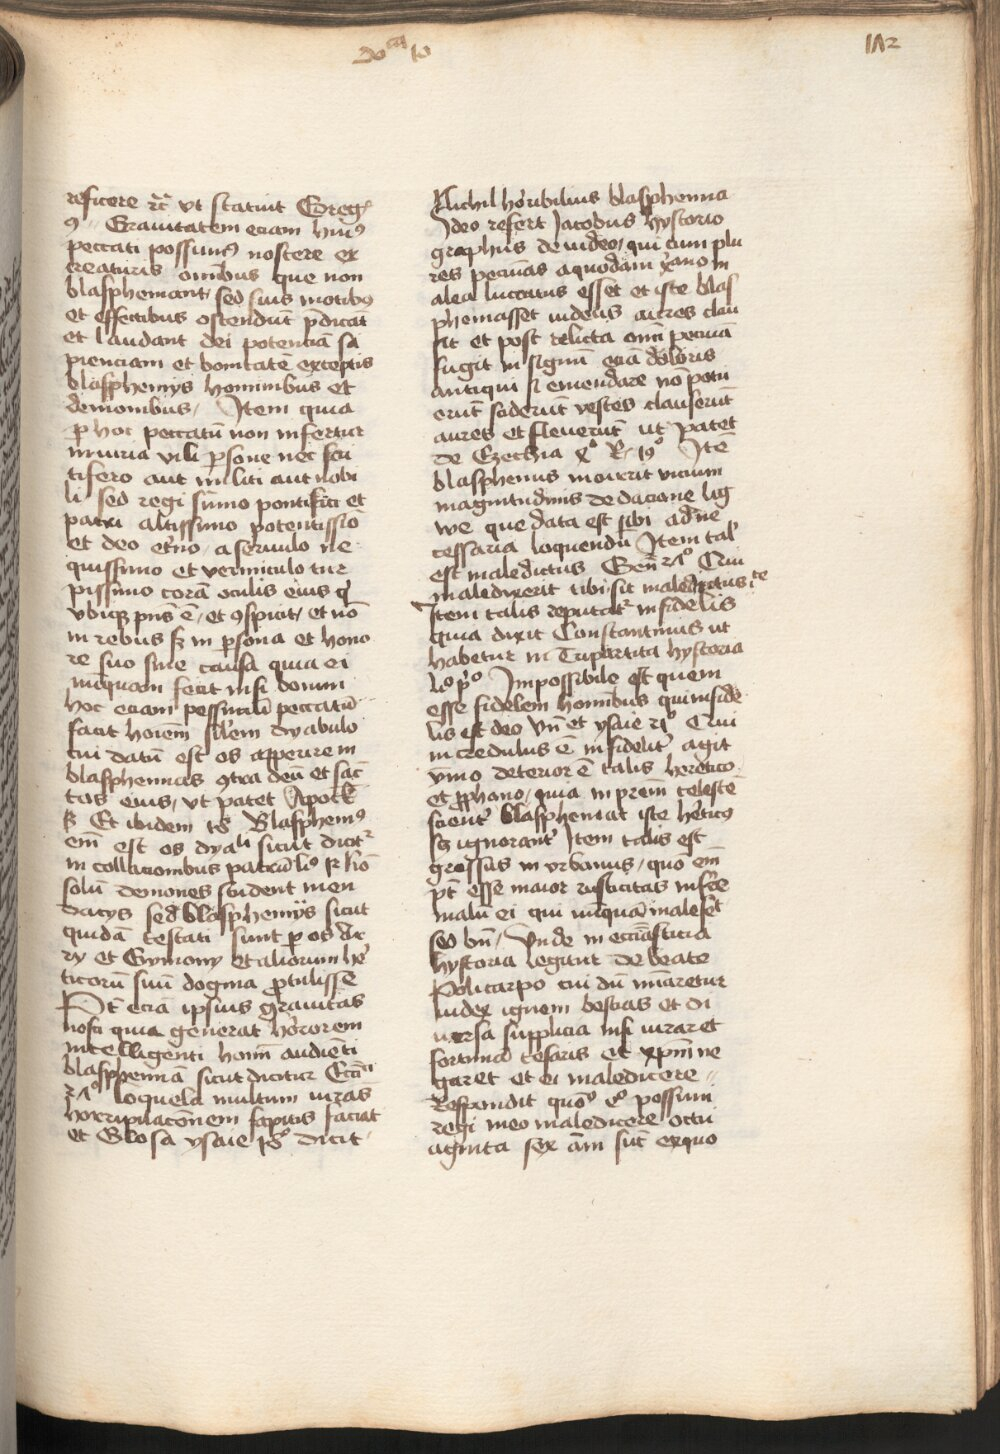 142
reficere etc̄ ut statuit Greg9
9 Grauitatem eciam hui9
peccati possum9 noscere ex
creaturis om̄ibus que non
blasphemant, sed suis motib9
et effectibus ostendūt p̄dicāt
et laudant dei potenciā sa
pienciam et bonitatē exceptis
blasphemys hominibus et
demonibus, Item quia
p hoc peccatū non infertur
iniuria vili psone nec scu
tifero aut militi aut nobi
li sed regi sūmo pontifici et
patri altissimo potentissīo
et deo et̓no, a seruulo ne
quissimo et vermiculo tur
pissimo corā oculis eius q
vbiq pn̄s ē, et 9spicit, et nō
in rebus sȝ in psona et hono
re suo sine causa quia ei
nūquam fecit nisi bonum
hoc eciam pessimū peccatū
facit hoīem sīlem dyabulo
cui datū est os apperire in
blasphemias 9tra deū et sāc
tos eius, ut patet Apock
Et ibidem Blasphem9
eīm est os dyali sicut dicit2
in collacionibus patrū lio
solū demones student men
dacys sed blasphemijs sicut
quidā testati sunt p os Ar
ry et Symony et aliorum he
ticorū suū dogma ptulisse
Pt eciā ipsius grauitas
nosci quia generat horrorem
intelligenti hoīm audiēti
blasphemiā sicut dicitur Eccī
loquela multum iurās
horripilacōnem capitis faciat
et Glosa ysaie dicit
Nichil horribilius blasphemia
Ideo refert Jacobus hystorio
graphus de iudeo, qui cum plu
res pecūias a quodam xāno in
alea lucratus esset et iste blas
phemasset iudeus aures clau
sit et post relicta om̄i pecuīa
fugit in signū eciā doloris
antiqui si emendare nō potu
erūt scderūt vestes clauserūt
aures et fleuerūt ut patet
de Ezechia Itē
blasphemus meretur vicium
magnitudinis de dacione lig
we que data est sibi ad ne
cessaria loquendū Item tal
est maledictus Gen̄ Qui
maledixerit tibi sit maledictus
Item talis reputat2 infidelis
quia dixit Constantinus ut
habetur in Tripartita hystoria
lio po Impossibile est quem
esse fidelem hominibus qui infide
lis est deo Vn̄ et ysaie Qui
incredulus ē infidelit agit
ymo deterior ē talis heretico
et pphano, quia in prem̄ celestē
scient blasphemat iste hetic9
sȝ ignorant Item talis est
grossus in vrbanus, quo eīm
pt esse maior rusticitas
malū ei qui nūquā
sed bn̄, Vnde in ecciāstica
hystoria legitur de beato
Policarpo cui dū minaretur
iudex ignem bestias et di
uersa supplicia nisi iuraret
fortunā cesaris et xpm̄ ne
garet et ei maledicere
Respondit quōo possum
regi meo maledicere octu
aginta sex ānī sūt exquo